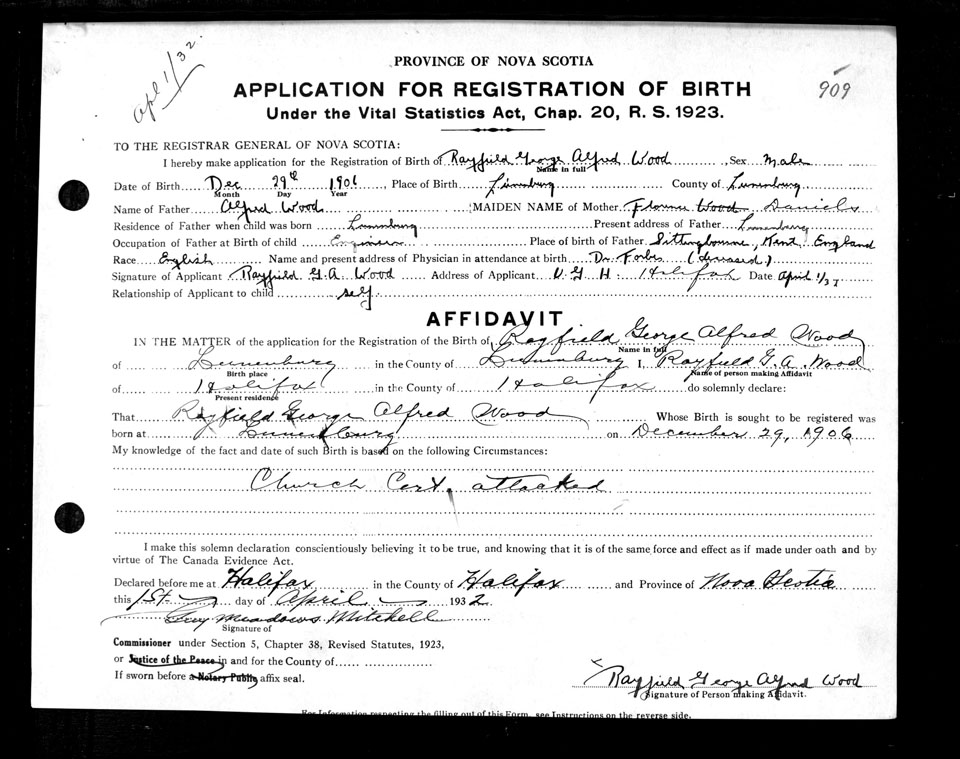 apl 1/32.
PROVINCE OF NOVA SCOTIA
909
APPLICATION FOR REGISTRATION OF BIRTH
Under the Vital Statistics Act, Chap. 20, R. S. 1923.
TO THE REGISTRAR GENERAL OF NOVA SCOTIA:
I hereby make application for the Registration of Birth of Rayfield George Alfred Wood, Sex Male
Name in full
Date of Birth Dec 29th 1906, Place of Birth Lunenburg County of Lunenburg
Month Day Year
Name of Father Alfred Wood MAIDEN NAME of Mother Florence Wood Daniels
Residence of Father when child was born Lunenburg Present address of Father Lunenburg
Occupation of Father at Birth of child Engineer Place of birth of Father Sittingbourne, Kent, England
Race English Name and present address of Physician in attendance at birth Dr. Forbes (deceased.)
Signature of Applicant Rayfield G.A. Wood Address of Applicant V. G. H. Halifax Date April 1/32
Relationship of Applicant to child self
AFFIDAVIT
IN THE MATTER of the application for the Registration of the Birth of Rayfield George Alfred Wood
Name in full
of Lunenburg in the County of Lunenburg I, Rayfield G. A. Wood
Birth place Name of person making Affidavit
of Halifax in the County of Halifax do solemnly declare:
Present residence
That Rayfield George Alfred Wood Whose Birth is sought to be registered was
born at Lunenburg on December 29, 1906
My knowledge of the fact and date of such Birth is based on the following Circumstances:
Church Cert. attached
I make this solemn declaration conscientiously believing it to be true, and knowing that it is of the same force and effect as if made under oath and by
virtue of The Canada Evidence Act.
Declared before me at Halifax in the County of Halifax and Province of Nova Scotia
this 1st day of April 1932
Guy Meadows Mitchell
Signature of
Commissioner under Section 5, Chapter 38, Revised Statutes, 1923,
or Justice of the Peace in and for the County of
If sworn before a Notary Public affix seal.
Rayfield George Alfred Wood
Signature of Person making Affidavit.
For Information respecting the filling out of this Form, see Instructions on the reverse side.